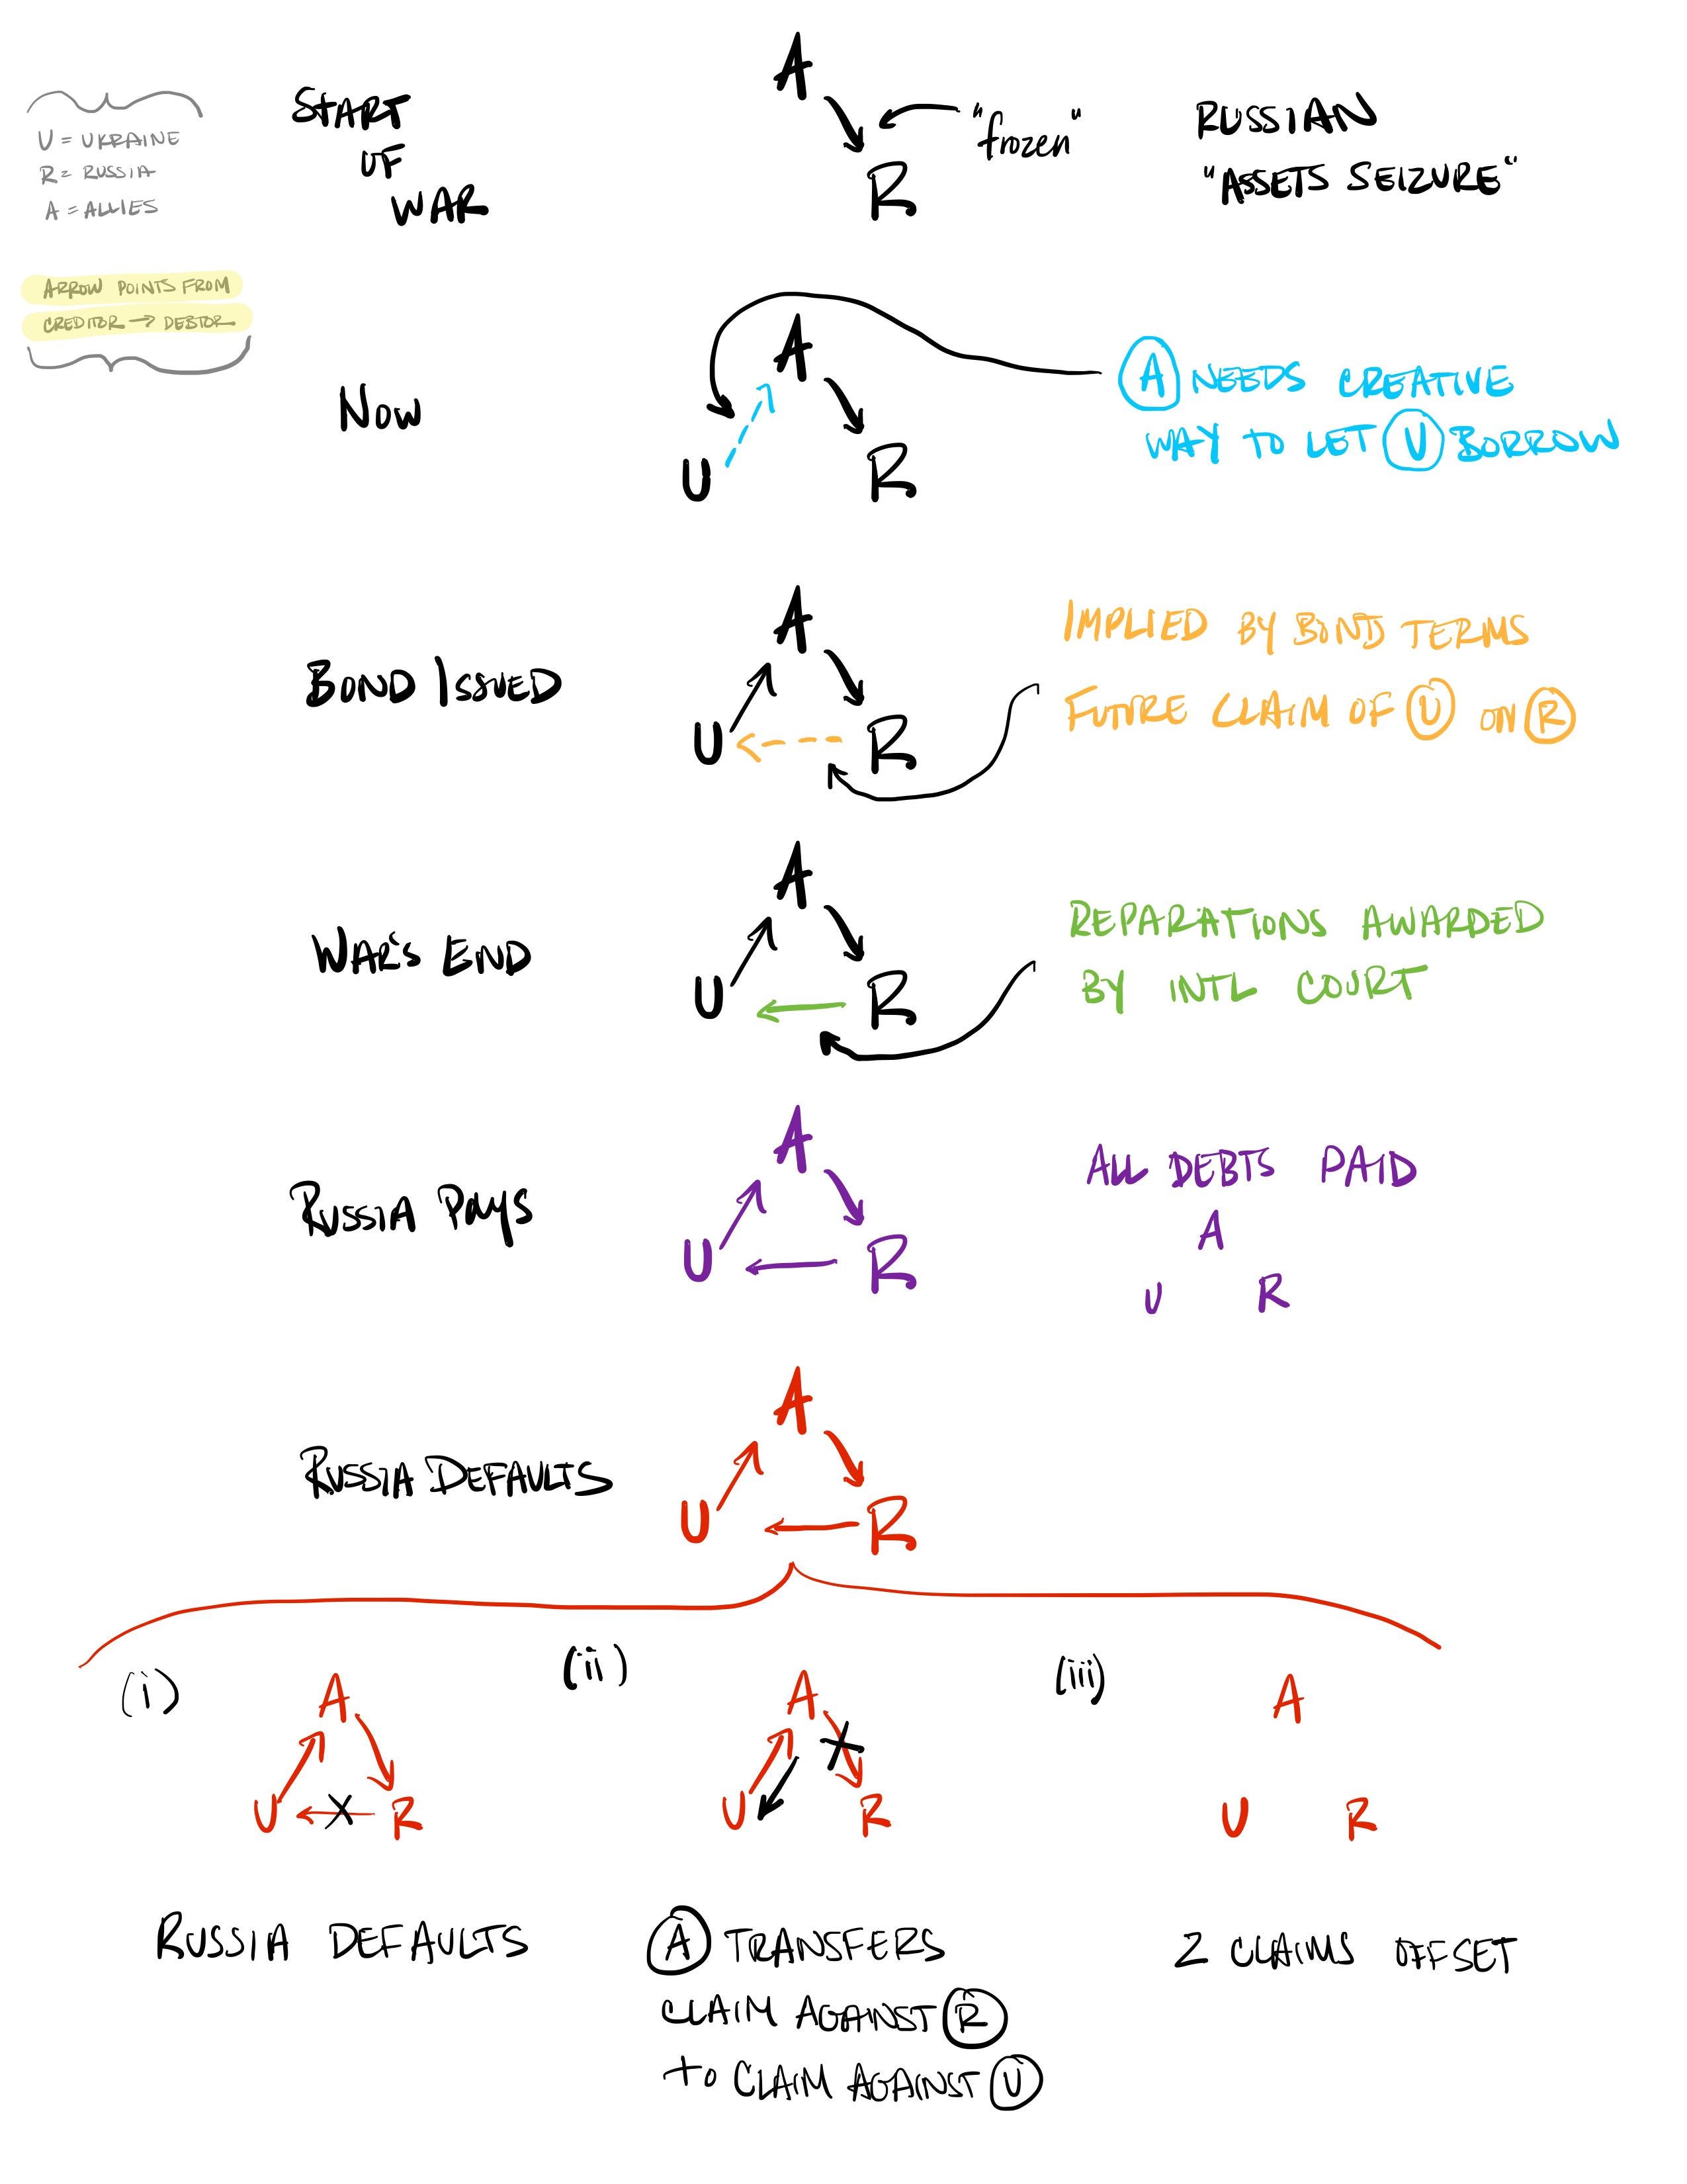 U = UKRAINE
R = RUSSIA
A = ALLIES
ARROW POINTS FROM
CREDITOR → DEBTOR
START
OF
WAR
A
R
"frozen"
RUSSIAN
"ASSETS SEIZURE"
NOW
A
U
R
A NEEDS CREATIVE
WAY TO LET U BORROW
BOND ISSUED
A
U
R
IMPLIED BY BOND TERMS
FUTURE CLAIM OF U ON R
WAR'S END
A
U
R
REPARATIONS AWARDED
BY INTL COURT
RUSSIA PAYS
A
U
R
ALL DEBTS PAID
A
U R
RUSSIA DEFAULTS
A
U
R
(i)
A
U X R
RUSSIA DEFAULTS
(ii)
A
X
U R
A TRANSFERS
CLAIM AGAINST R
to CLAIM AGAINST U
(iii)
A
U R
2 CLAIMS OFFSET